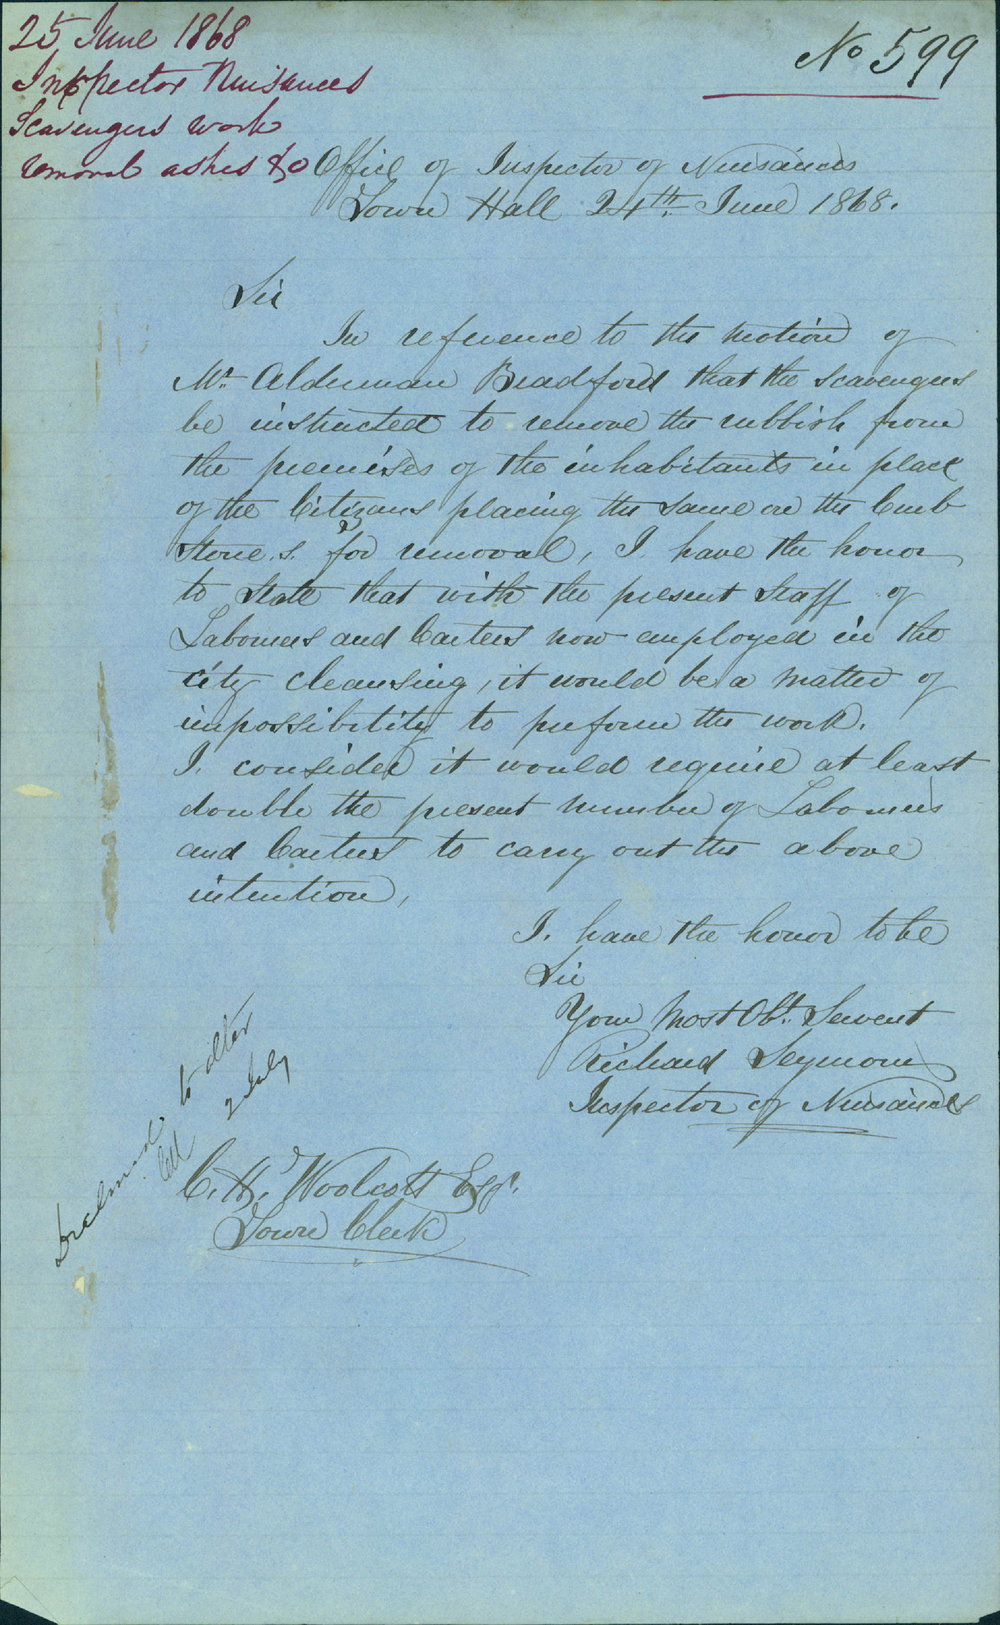 25 June 1868
Inspector Nuisances
Scavengers work
removal ashes &c
No 599
Office of Inspector of Nuisances
Town Hall 24th June 1868.
Sir
In reference to the motion of
Mr Alderman Bradford that the scavengers
be instructed to remove the rubbish from
the premises of the inhabitants in place
of the Citizans placing the same on the Curb
Stone.s. for removal, I have the honor
to State that with the present Staff of
Labourers and Carters now employed in the
city cleansing, it would be a matter of
impossibility to perform the work.
I. consider it would require at least
double the present number of Labourers
and Carters to carry out the above
intention,
I. have the honor to be
Sir
Your Most Obt. Servent
Richard Seymour
Inspector of Nuisances
to alter
2 July
C. H. Woolcott Esqr.
Town Clerk